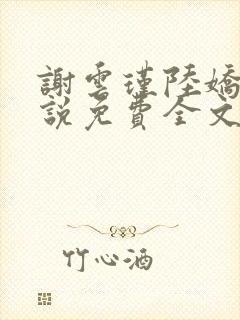 謝雲瑾陸嬌
說免費全文
竹心酒